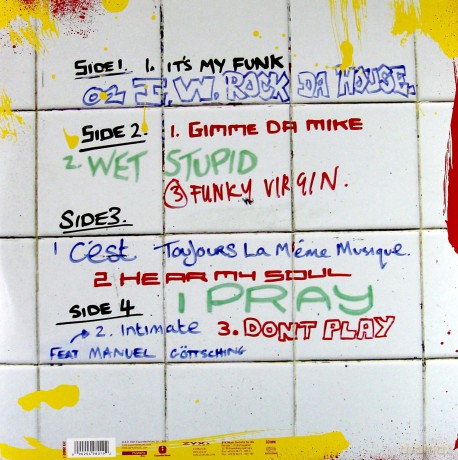 SIDE 1. 1. IT'S MY FUNK
02 I.W. ROCK DA HOUSE.
SIDE 2. 1. GIMME DA MIKE
2. WET STUPID
3 FUNKY VIRGIN.
SIDE 3.
1 C'est Toujours La Même Musique.
2 HEAR MY SOUL
SIDE 4 1 PRAY
2. Intimate 3. DON'T PLAY
FEAT MANUEL GÖTTSCHING
ZYX